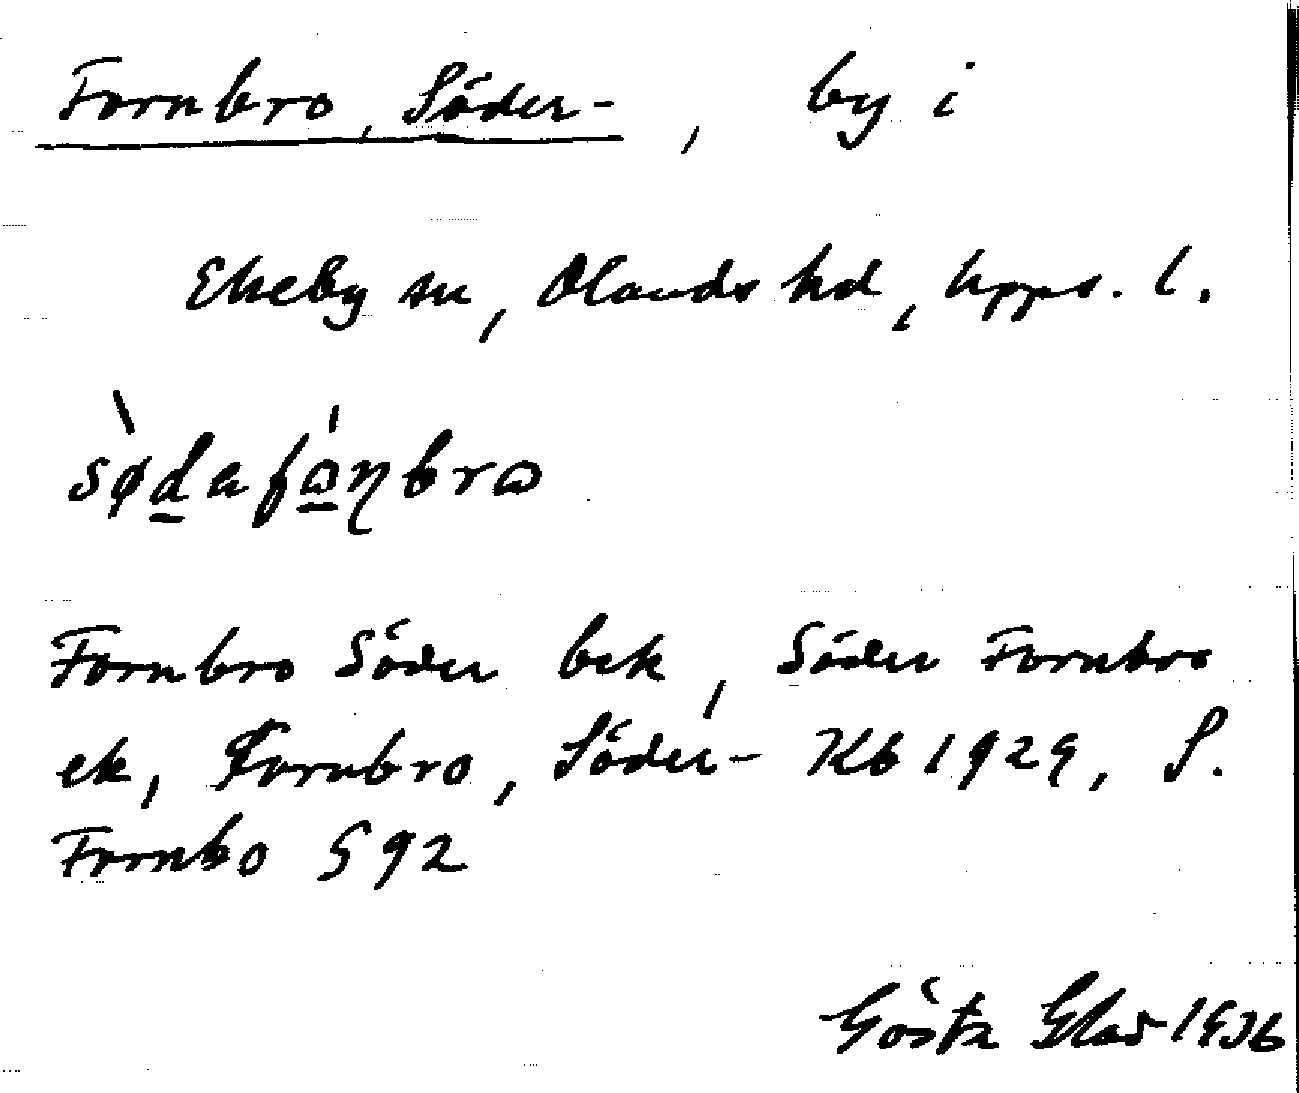 Fornbro, Söder-, by i
Ekeby sn, Olands hd, Upps. l.
sø̀dafɷ́ɳbrɷ
Fornbro Söder bek, Söder Fornbro
ek, Fornbro, Söder- Kb 1929, S.
Fornbo S 92
Gösta Glas 1936